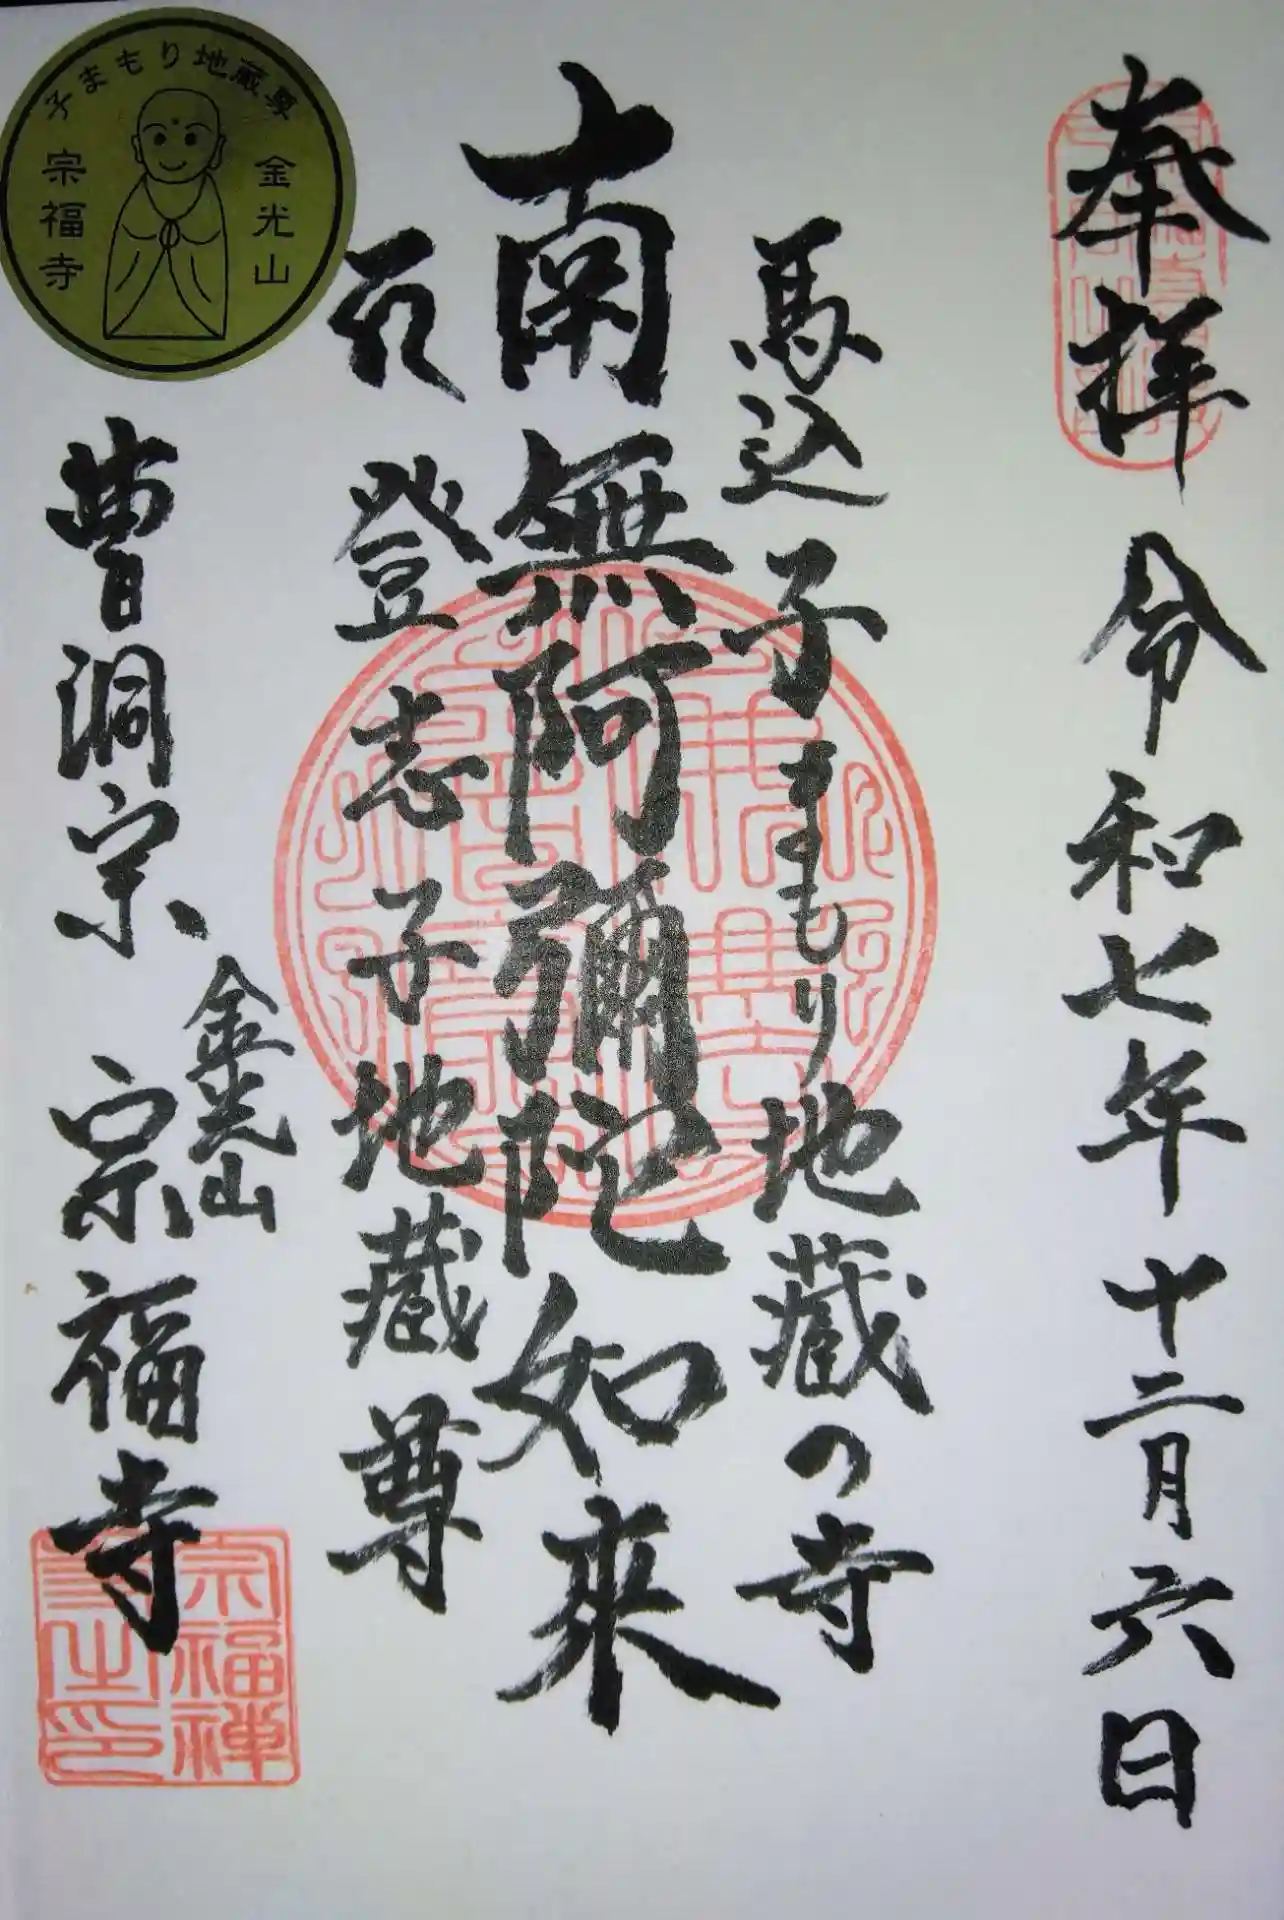 奉拝 令和七年十二月六日
馬込子まもり地蔵の寺
南無阿彌陀如来
登志子地蔵尊
曹洞宗 金光山 宗福寺
子まもり地蔵尊
金光山
宗福寺
宗福禅
寺之印